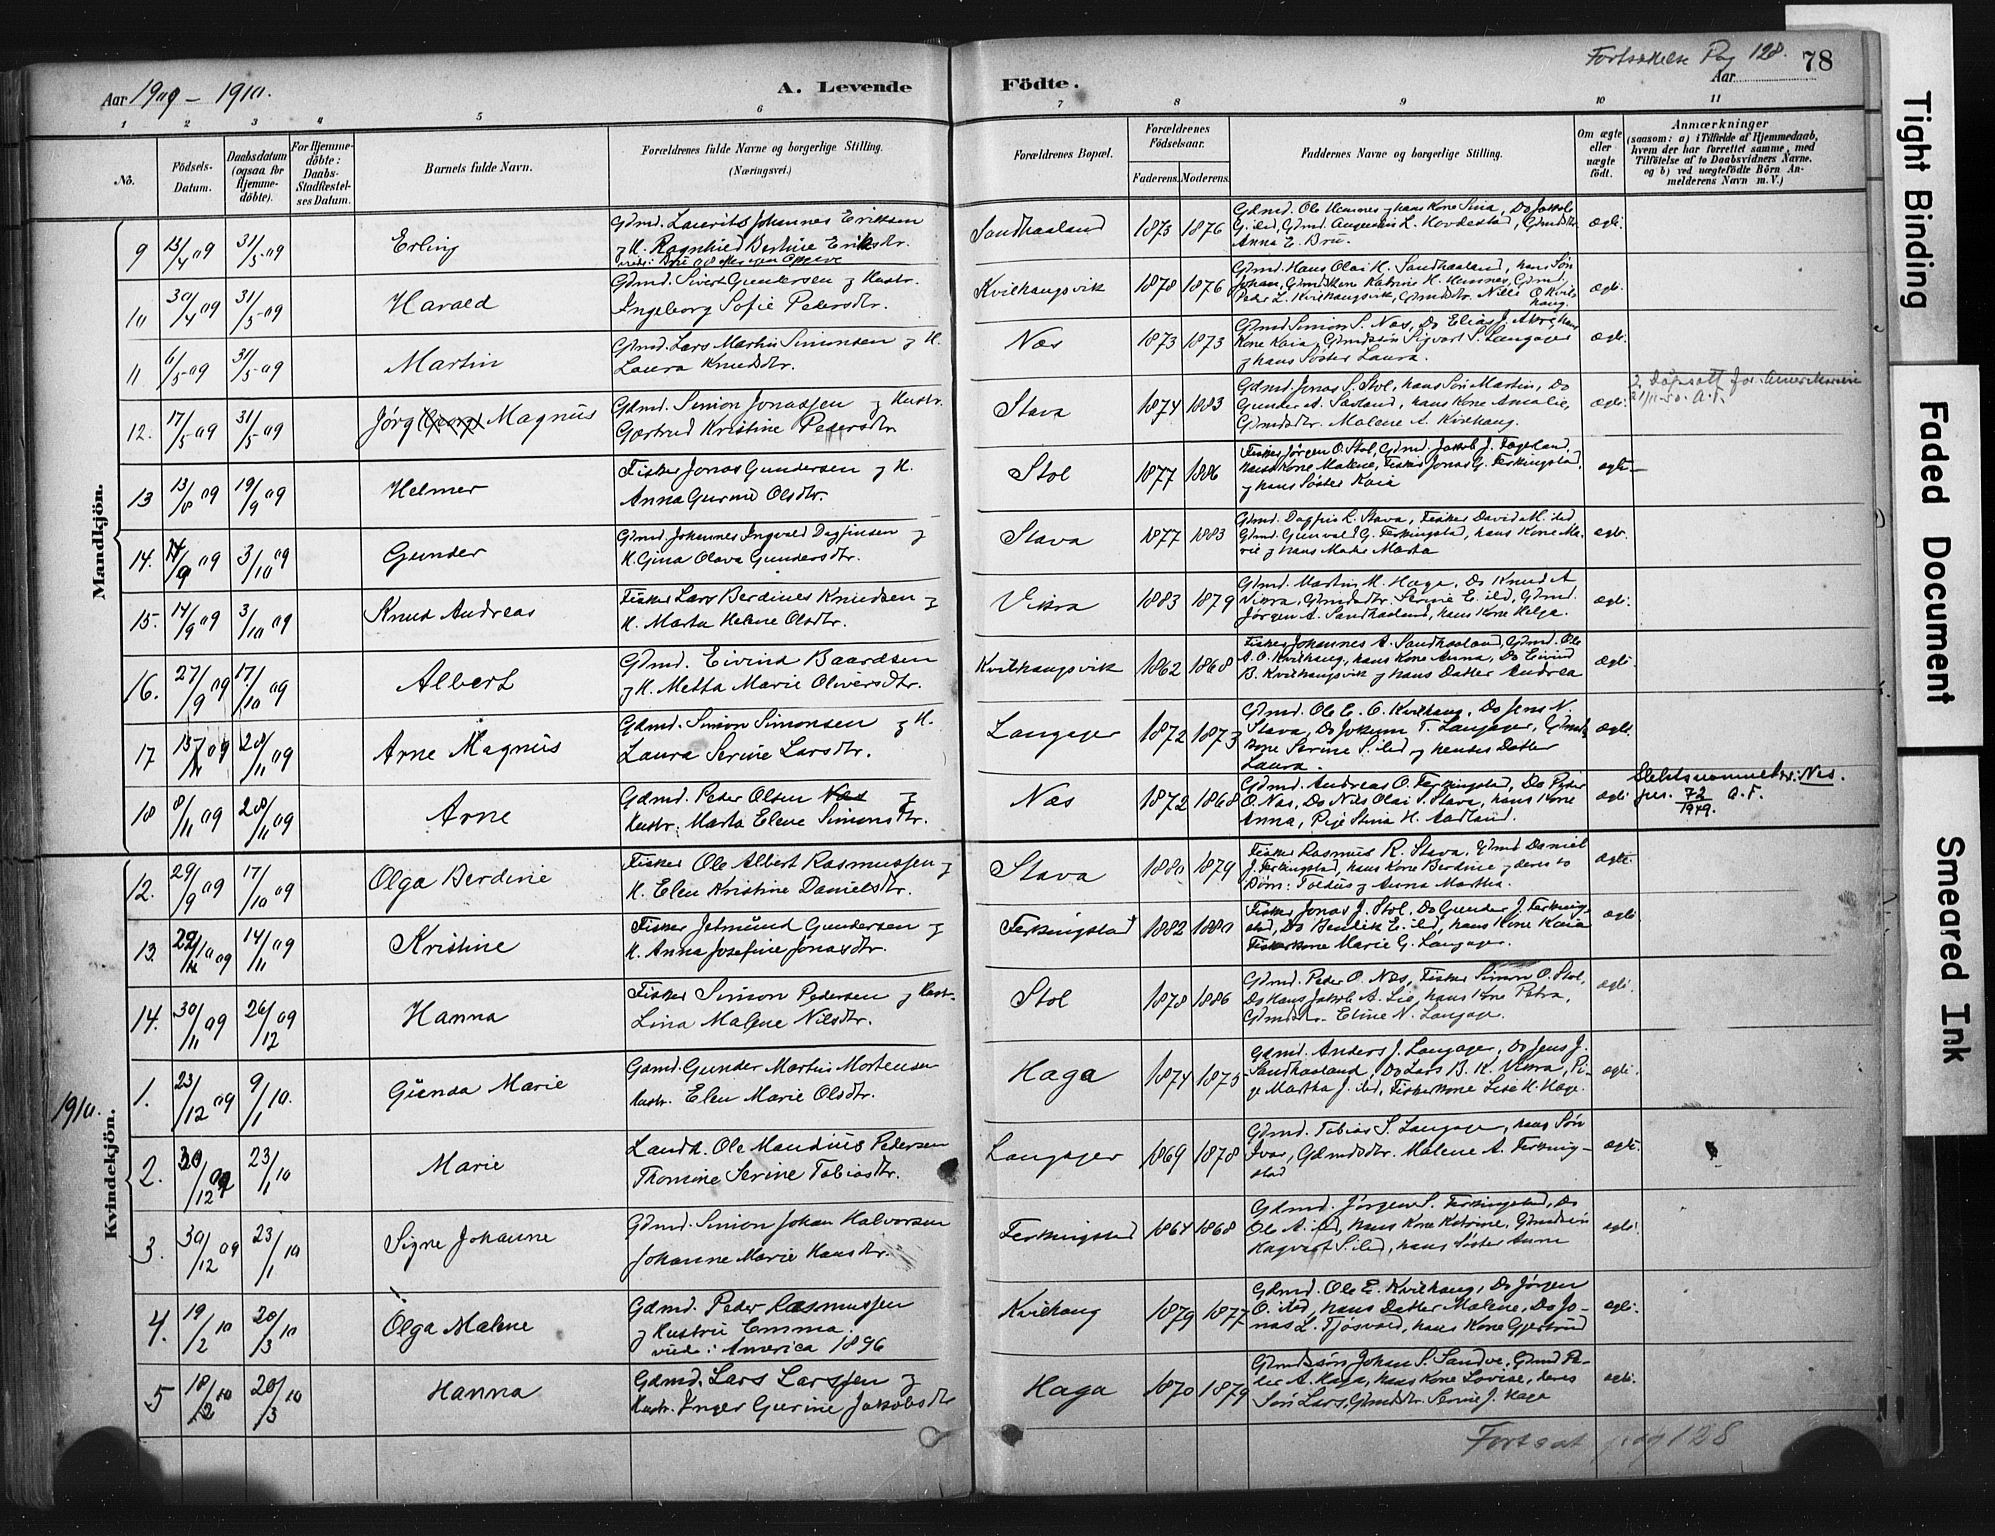 Fortsættelse Pag 128.
Aar 1909 - 1910.
A. Levende
Födte.
Aar
78
1 2 3 4 5 6 7 8 9 10 11
No.
Födsels-Datum.
Daabsdatum (ogsaa for Hjemmedöbte).
For Hjemmedöbte: Daabs-Stadfæstelses Datum.
Barnets fulde Navn.
Forældrenes fulde Navne og borgerlige Stilling. (Næringsvei.)
Forældrenes Bopæl.
Forældrenes Födselsaar.
Faderens. Moderens.
Faddernes Navne og borgerlige Stilling.
Om ægte eller uægte födt.
Anmærkninger
(saasom: a) i Tilfælde af Hjemmedaab,
hvem der har forrettet samme, med
Tilföielse af to Daabsvidners Navne,
og b) ved uægtefödte Börn Anmelderens Navn m. V.)
Mandkjön.
9 13/4 09 31/5 09 Erling
Gdmd. Laurits Johannes Eriksen
og H. Ragnhild Bertine Eriksdtr.
Sandhaaland 1873 1876
Gdmd. Ole Hemnes og hans Kone Sina, Do Jakob
G. ibd, Gdmd. Augustin L. Hovdestad, Gdmdsdtr.
Anna E. Bru.
ægte.
10 30/4 09 31/5 09 Harald
Gdmd. Sivert Gundersen og Hustr.
Ingeborg Sofie Petersdtr.
Kvilhaugsvik 1878 1876
Gdmd. Hans Olai H. Sandhaaland, hans Søn
Johan, Gdmdskone Katrine H. Hemnes, Gdmd.
Peder L. Kvilhaugsvik, Gdmdsdtr. Nilli O. Kvilhaug.
ægte.
11 6/5 09 31/5 09 Martin
Gdmd. Lars Martin Simonsen og H.
Laura Knudsdtr.
Næs 1873 1873
Gdmd Simon S. Næs, Do Elias J. Akre, hans
Kone Kaia, Gdmdssøn Sigvart S. Langager
og hans Søster Laura.
ægte.
12. 17/5 09 31/5 09 Jørg Magnus
Gdmd. Simon Jonassen og Hustr.
Gærtrud Kristine Pedersdtr.
Stava 1874 1883
Gdmd. Jonas S. Stol, hans Søn Martin, Do
Gunder A. Sævland, hans Kone Amalie,
Gdmdsdtr. Malene A. Kvilhaug.
ægte.
2 Døpsatt for Amerikareise
21/11-50. A.F.
13 13/8 09 19/9 09 Helmer
Fisker Jonas Gundersen og H.
Anna Gurine Olsdtr.
Stol 1877 1886
Fisker Jørgen O. Stol, Gdmd Jakob J. Fageland,
hans Kone Malene, Fisker Jonas G. Ferkingstad,
og hans Søster Kaia
ægte
14. 14/9 09 3/10 09 Gunder
Gdmd. Johannes Ingvald Dagfinsen og
H. Gina Olava Gundersdtr.
Stava 1877 1883
Gdmd. Dagfin L. Stava, Fisker David M. ibd
Gdmd Gunvald G. Ferkingstad, hans Kone Marie
og hans Moder Marta
ægte.
15. 14/9 09 3/10 09 Knut Andreas
Fisker Lars Berdines Knudsen og
H. Marta Helene Olsdtr.
Vikra 1883 1879
Gdmd. Martin M. Haga, Do Knud A.
Vikra, Gdmdsdtr. Serine E. ibd, Gdmd.
Jørgen A. Sandhaaland, hans Kone Helga.
ægte.
16. 27/9 09 17/10 09 Albert
Gdmd. Eivind Baardsen
og H. Metta Marie Oliversdtr.
Kvilhaugsvik 1862 1868
Fisker Johannes A. Sandhaaland, Gdmd. Ole
A. O. Kvilhaug, hans Kone Anna, Do Eivind
B. Kvilhaugsvik og hans Datter Andrea
ægte
17 15/11 09 28/11 09 Arne Magnus
Gdmd. Simon Simonsen og H.
Laura Serine Larsdtr.
Langager 1872 1873
Gdmd. Ole E. O. Kvilhaug, Do Jens N.
Stava, Do Jokum T. Langager, Gdmds
kone Serine S. ibd og hendes Datter
Laura.
ægte.
18 8/11 09 28/11 09 Arne
Gdmd. Peder Olsen Næs og
Hustr. Marta Elene Simonsdtr.
Næs 1872 1868
Gdmd. Andreas O. Ferkingstad, Do Peder
O. Næs, Do Nils Olai S. Stava, hans Kone
Anna, Pige Stina H. Aadland.
ægte
Slektsnavnet er: Nes.
jnr. 72/1949. A.F.
Kvindekjön.
12. 29/9 09 17/10 09 Olga Berdine
Fisker Ole Albert Rasmussen og
H. Elen Kristine Danielsdtr.
Stava 1880 1879
Fisker Rasmus R. Stava, Gdmd Daniel
J. Ferkingstad, hans Kone Berdine og deres to
Børn: Toldus og Anna Martha.
ægte.
13. 22/10 09 14/11 09 Kristine
Fisker Jetmund Gundersen og
H. Anna Josefine Jonasdtr.
Ferkingstad 1882 1880
Fisker Jonas J. Stol, Do Gunder J. Ferkingstad,
Do Bendik E. ibd, hans Kone Kaia
Fiskerkone Marie G. Langager.
ægte
14. 30/11 09 26/12 09 Hanna
Fisker Simon Pedersen og Hust.
Lina Malene Nilsdtr.
Stol 1878 1886
Gdmd. Peder O. Næs, Fisker Simon O. Stol,
Do Hans Jakob A. Lie, hans Kone Petra,
Gdmdsdtr. Eline N. Langager.
ægte.
1910.
1. 23/12 09 9/1 10. Gunda Marie
Gdmd. Gunder Martin Mortensen
Hustr. Elen Marie Olsdtr.
Haga 1874 1875
Gdmd. Anders J. Langager, Do Jens J.
Sandhaaland, Do Lars B. K. Vikra, Pige
Martha J. ibd, Fiskerkone Lise H. Haga.
ægte.
2. 30/12 09 23/1 10 Marie
Landh. Ole Mandius Pedersen
Thomine Serine Tobiasdtr.
Langager 1869 1878
Gdmd. Tobias S. Langager, hans Søn
Ivar, Gdmdsdtr. Malene A. Ferkingstad
ægte.
3. 30/12 09 23/1 10 Signe Johanne
Gdmd. Simon Johan Halvorsen
Johanne Marie Hansdtr.
Ferkingstad 1864 1868
Gdmd. Jørgen S. Ferkingstad, Do
Ole A. ibd, hans Kone Katrine, Gdmdssøn
Hagvart S. ibd, hans Søster Anna
ægte.
4. 19/2 10 20/3 10 Olga Malene
Gdmd. Peder Rasmussen
og Hustru Emma.
viede i America 1896
Kvilhaug 1879 1877
Gdmd. Ole E. Kvilhaug, Do Jørgen
O. ibd, hans Datter Malene, Do Jonas
L. Tjøsvold, hans Kone Gjertrud
ægte.
5 18/2 10 20/3 10 Hanna
Gdmd. Lars Larssen og
Hustr. Inger Gurine Jakobsdtr
Haga 1870 1879
Gdmdssøn Johan S. Sandve, Gdmd Peder
A. Haga, hans Kone Lovise, deres
Søn Lars, Gdmdsdtr. Serine J. Haga
ægte.
Fortsat pag 128
Tight Binding
Faded Document
Smeared Ink